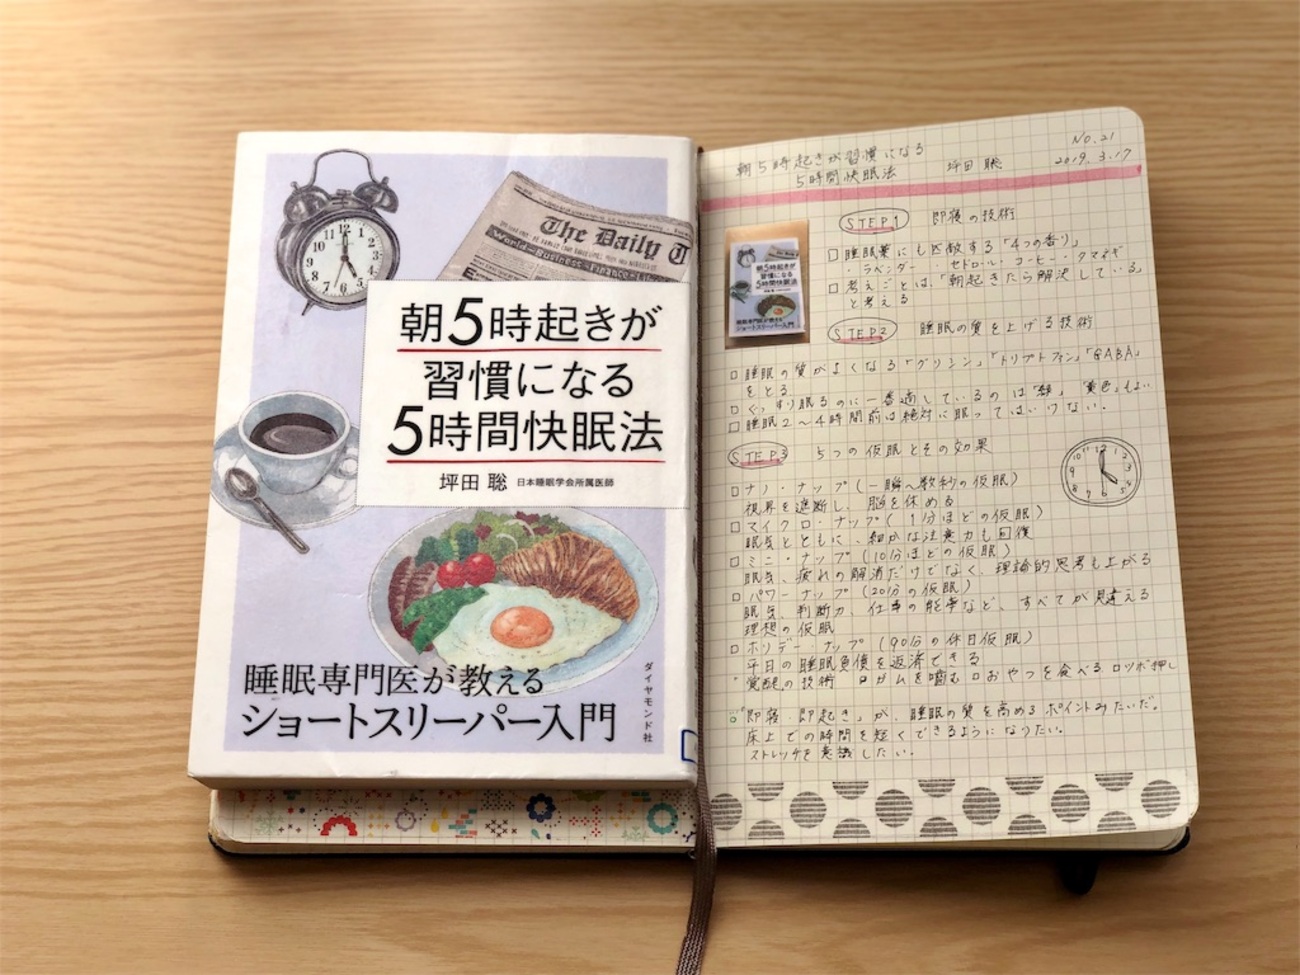 The Daily T
World-Business-Finance-Life
朝5時起きが
習慣になる
5時間快眠法
坪田 聡 日本睡眠学会所属医師
睡眠専門医が教える
ショートスリーパー入門
ダイヤモンド社
NO.21
朝5時起きが習慣になる
5時間快眠法 坪田 聡 2019.3.17
STEP1 即寝の技術
□睡眠薬にも匹敵する「4つの香り」
・ラベンダー ・セドロール・コーヒー・タマネギ
□考えごとは「朝起きたら解決している」
と考える
朝5時起きが
習慣になる
5時間快眠法
睡眠専門医が教える
ショートスリーパー入門
STEP2 睡眠の質を上げる技術
□睡眠の質がよくなる「グリシン」「トリプトファン」「GABA」
をとる
□ぐっすり眠るのに一番適しているのは「緑」「黄色」もよい
□睡眠2〜4時間前は絶対に眠ってはいけない。
STEP3 5つの仮眠とその効果
□ナノ・ナップ(一瞬〜数秒の仮眠)
視界を遮断し、脳を休める
□マイクロ・ナップ(1分ほどの仮眠)
眠気とともに、細かな注意力も回復
□ミニ・ナップ(10分ほどの仮眠)
眠気、疲れの解消だけでなく、理論的思考も上がる
□パワーナップ(20分の仮眠)
眠気、判断力、仕事の能率など、すべてが見違える
理想の仮眠
□ホリデー・ナップ(90分の休日仮眠)
平日の睡眠負債を返済できる
覚醒の技術 □ガムを噛む □おやつを食べる □ツボ押し
「即寝・即起き」が、睡眠の質を高めるポイントみたいだ。
床上での時間を短くできるようになりたい。
ストレッチを意識したい。